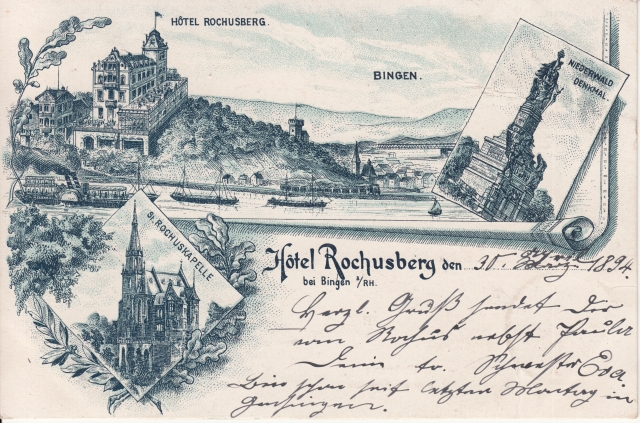 HÔTEL ROCHUSBERG.
BINGEN.
NIEDERWALD
DENKMAL.
St ROCHUSKAPELLE
Hôtel Rochusberg den 30. 1894.
bei Bingen a/RH.
Herzl. Gruß sendet Dir
vom Rochus nebst
Deine tr. Schwester Eva
Bin schon seit letzten Montag in
Gensingen.